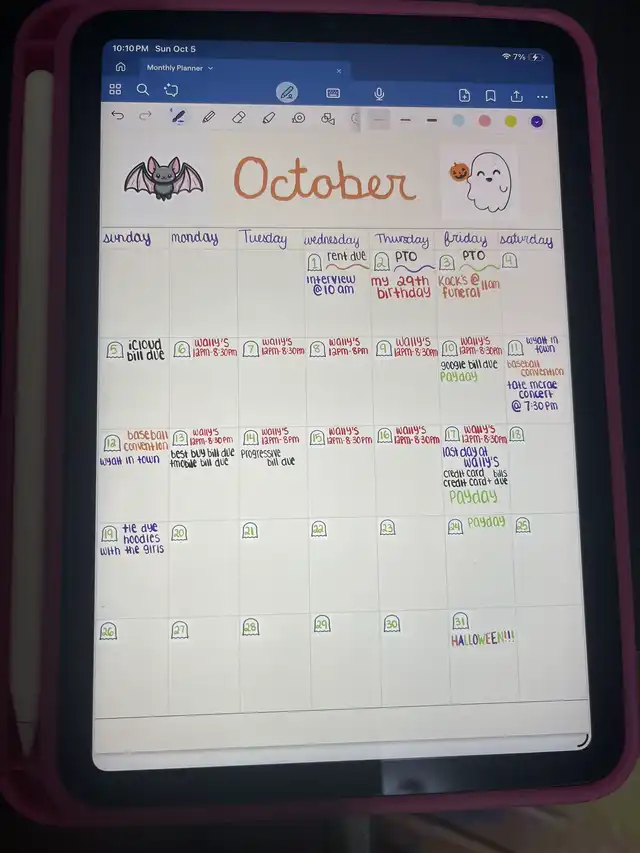 10:10 PM Sun Oct 5
7%
Monthly Planner
October
sunday monday Tuesday wednesday Thursday friday saturday
1 rent due
interview
@ 10 am
2 PTO
my 29th
birthday
3 PTO
Kack's @ 11am
funeral
4
5 iCloud
bill due
6 wally's
12pm-8:30pm
7 wally's
12pm-8:30pm
8 wally's
12pm-8pm
9 wally's
12pm-8:30pm
10 wally's
12pm-8:30pm
google bill due
Payday
11 wyatt in
town
baseball
convention
tate mcrae
concert
@ 7:30pm
12 baseball
convention
wyatt in town
13 wally's
12pm-8:30pm
best buy bill due
tmobile bill due
14 wally's
12pm-8pm
progressive
bill due
15 wally's
12pm-8:30pm
16 wally's
12pm-8:30pm
17 wally's
12pm-8:30pm
last day at
wally's
credit card bills
credit card+ due
Payday
18
19 tie dye
hoodies
with the girls
20
21
22
23
24 Payday
25
26
27
28
29
30
31
HALLOWEEN!!!